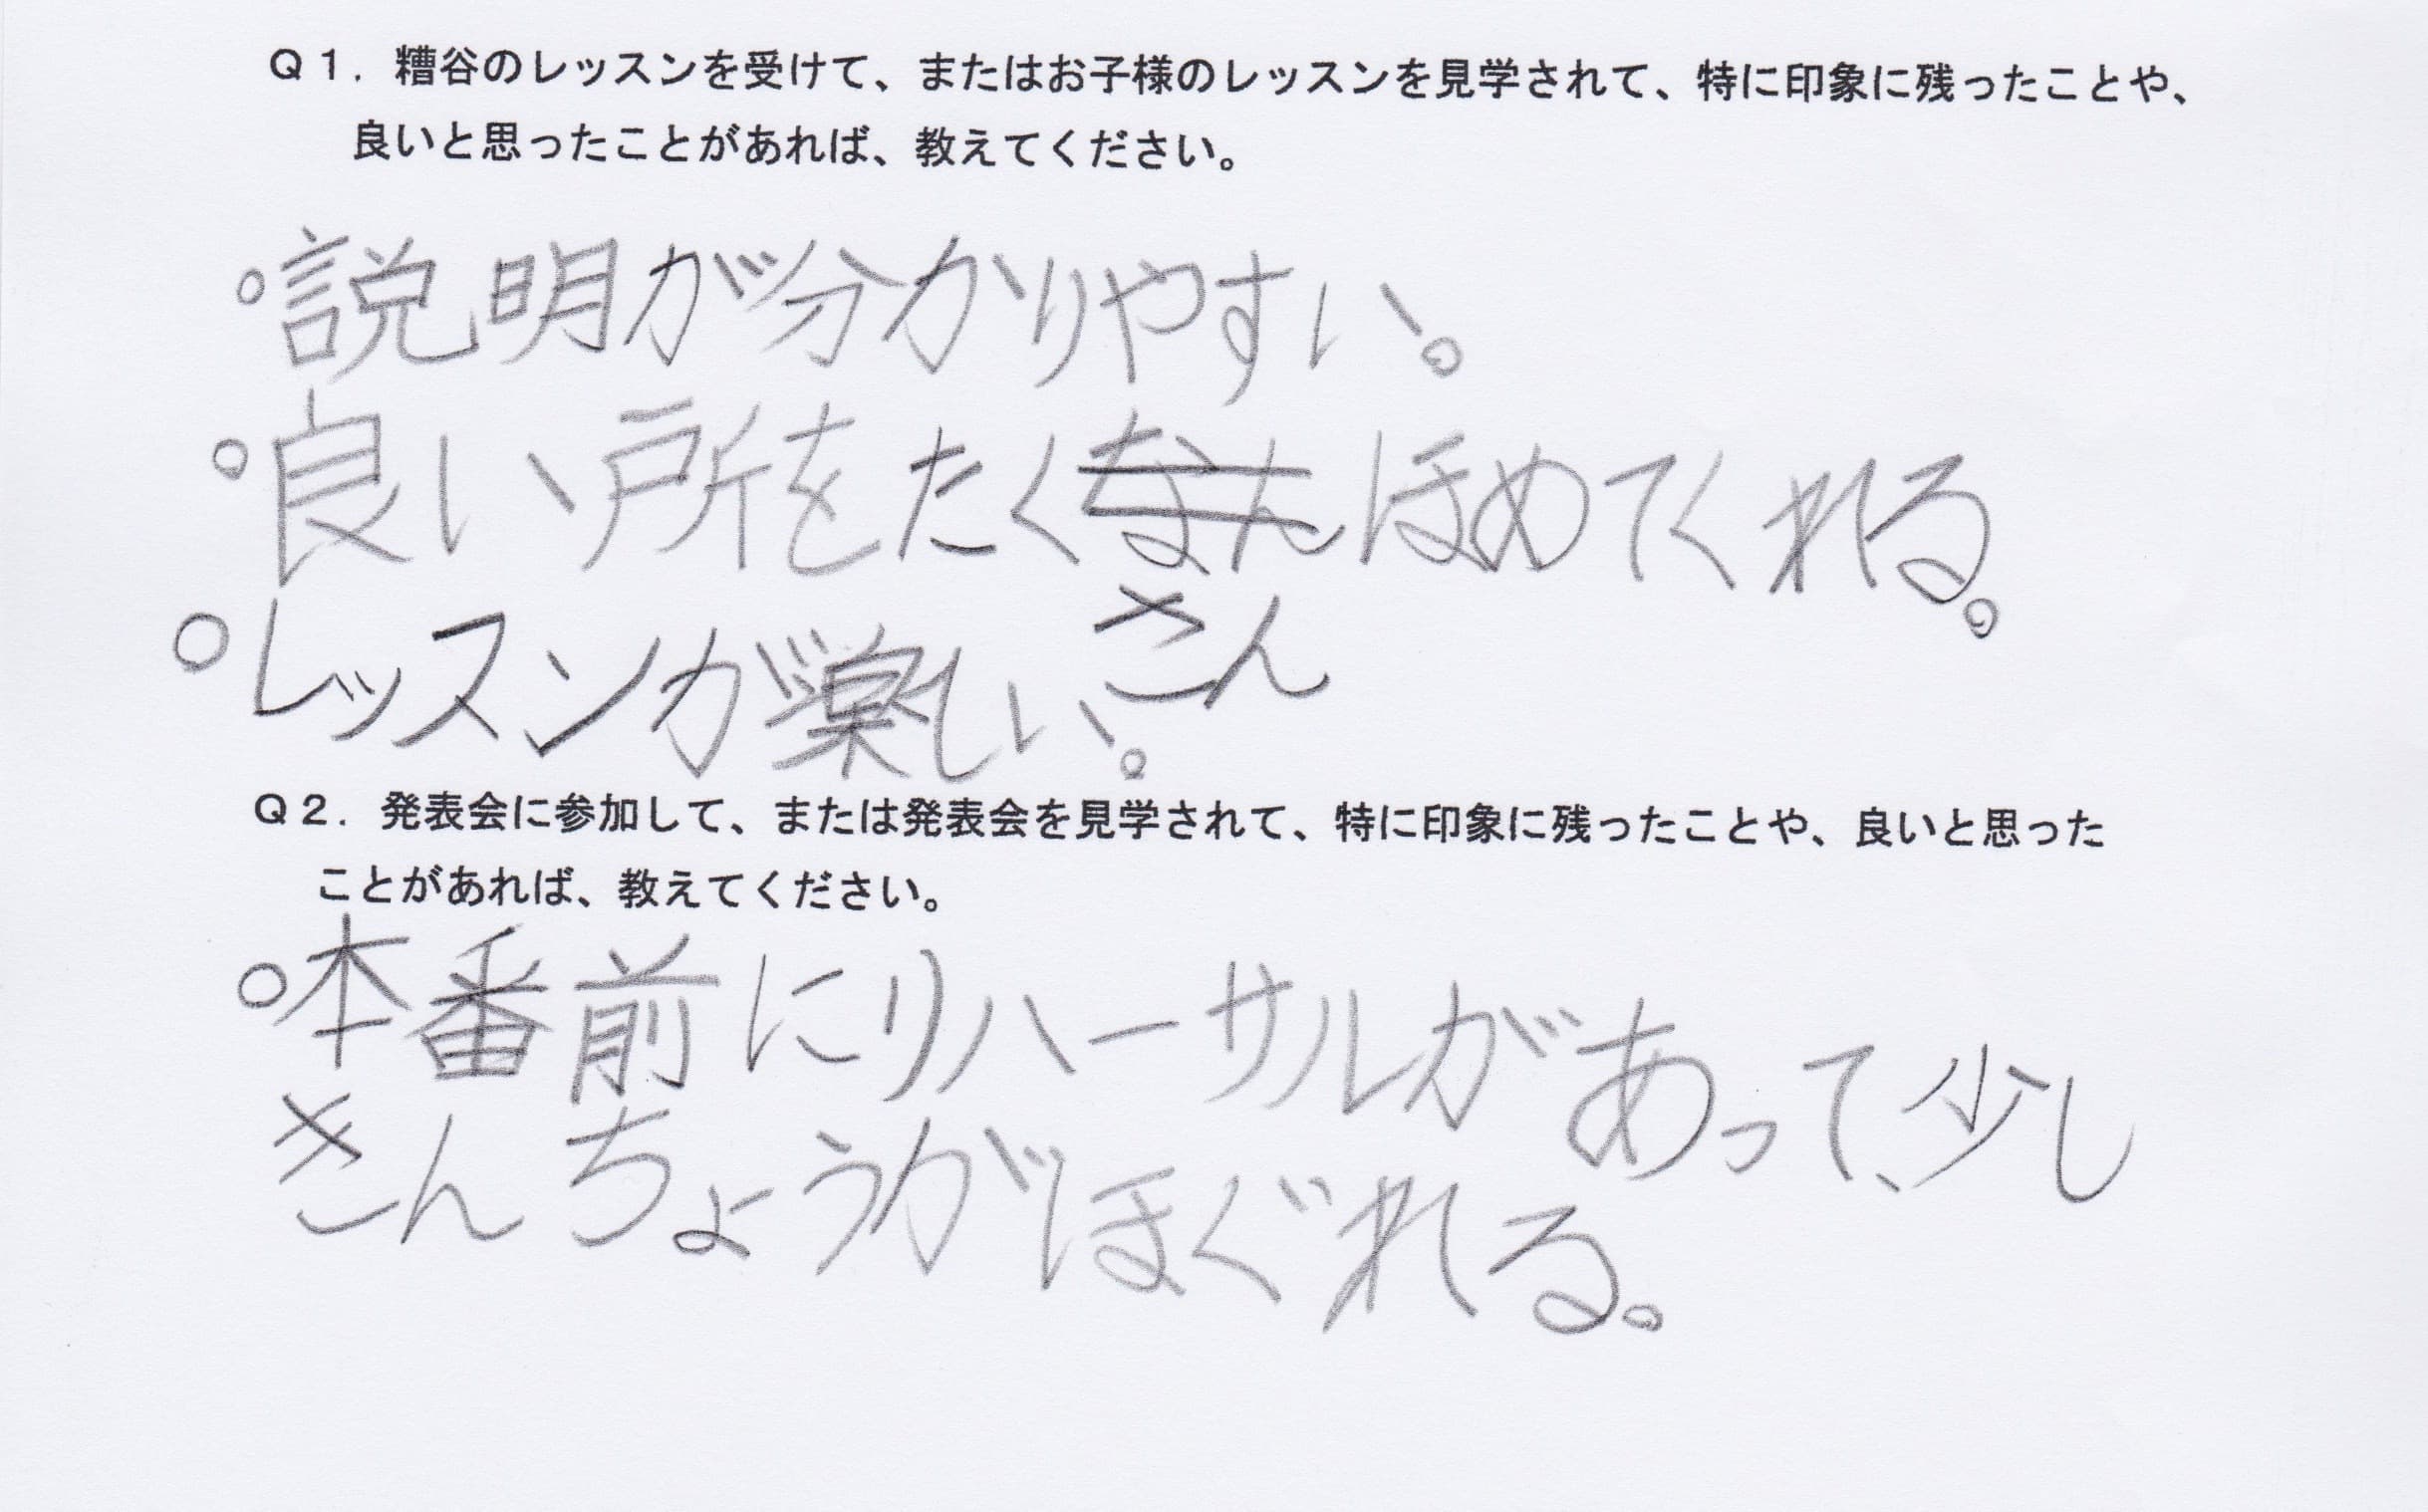 Q１．糟谷のレッスンを受けて、またはお子様のレッスンを見学されて、特に印象に残ったことや、
良いと思ったことがあれば、教えてください。
○説明が分かりやすい。
○良い所をたくさんほめてくれる。
○レッスンが楽しい。
Q２．発表会に参加して、または発表会を見学されて、特に印象に残ったことや、良いと思った
ことがあれば、教えてください。
○本番前にリハーサルがあって、少し
きんちょうがほぐれる。